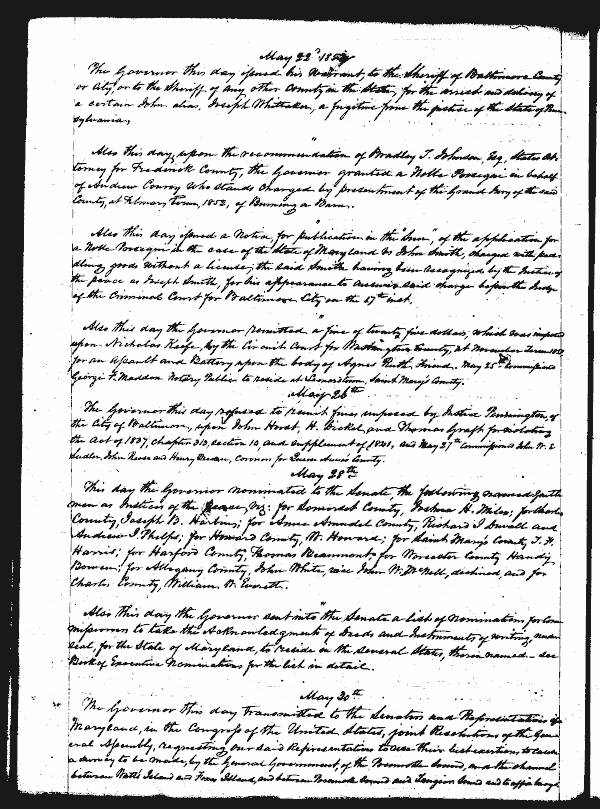 May 22d 1852
The Governor this day issued his warrant, to the Sheriff of Baltimore County
or City, or to the Sheriff of any other County in the State, for the arrest and delivery of
a certain John alias Joseph Whittaker, a fugitive from the justice of the State of Penn
sylvania,
"
Also this day, upon the recommendation of Bradley T. Johnson, Esq, States At-
torney for Frederick County, the Governor granted a Nolle Prosequi in behalf
of Andrew Conroy who stands charged by presentment of the Grand Jury of the said
County, at February Term, 1852, of Burning a Barn.
"
Also this day issued a Notice, for publication in the "Sun", of the application for
a Nolle Prosequi in the case of the State of Maryland vs John Smith, charged with ped
dling goods without a license, the said Smith having been recognized by the Justice of
the peace as Joseph Smith, for his appearance to answer said charge before the Judge
of the Criminal Court for Baltimore City on the 27th inst.
"
Also this day the Governor remitted a fine of twenty five dollars, which was imposed
upon Nicholas Keefe, by the Circuit Court for Washington County, at November Term 1851
for an Assault and Battery upon the body of Agnes Ruth, Friend. May 25th commissioned
George F. Maddox Notary Public to reside at Leonardtown, Saint Mary's County.
May 26th
The Governor this day refused to remit fines imposed by Justice Purvington, of
the City of Baltimore, upon John Horst, H. Bickel, and Thomas Graff for violating
the Act of 1837, chapter 313, section 10, and supplement of 1841, and May 27th commissioned John W. E.
Sudler, John Reese and Henry Deaver, Coroners for Queen Anne's County.
May 28th
This day the Governor nominated to the Senate the following named Gentle
men as Justices of the Peace, viz: for Somerset County, Joshua H. Miles; for Charles
County, Joseph B. Harbin; for Anne Arundel County, Richard I Duvall and
Andrew J. Phelps; for Howard County, W. Howard; for Saint Mary's County, T. H.
Harris; for Harford County, Thomas Beaumont; for Worcester County Handy
Bowen; for Allegany County, John White, vice John W. McNell, declined, and for
Charles County, William W. Everett.
"
Also this day the Governor sent into the Senate a list of nominations for Com
missioners to take the Acknowledgments of Deeds and Instruments of writing, under
seal, for the State of Maryland, to reside in the several States, therein named - see
Book of Executive Nominations for the list in detail.
May 29th
The Governor this day transmitted to the Senators and Representatives of
Maryland, in the Congress of the United States, joint Resolutions of the Gen
eral Assembly, requesting our said Representatives to use their best exertions, to cause
a survey to be made, by the General Government, of the Pocomoke Sound, and the channel
between Watts Island and Foxes Island, and between Pocomoke Sound and Tangier Sound and to affix buoys